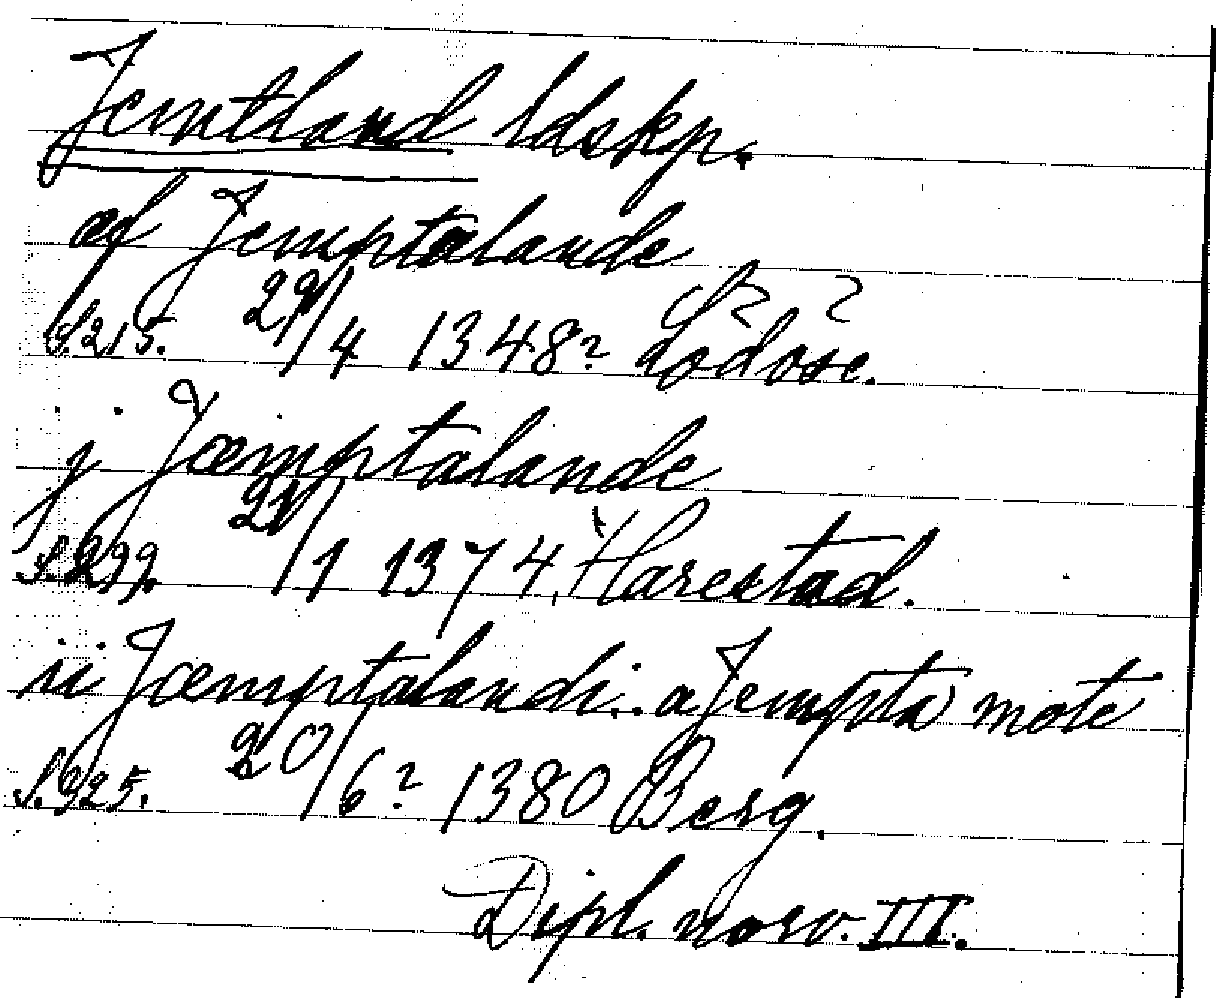 Jemtland ldskp.
af Jemptalande
S. 215. 29/4 1348? Lödöse.
j Jæmptalande
S. 299. 21/1 1374, Harestad.
ii Jæmptalandi.. a Jempta mote
S. 325. 20/6? 1380 Berg.
Dipl. norv. III.